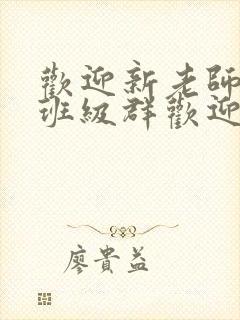 歡迎新老師
班級群歡迎
廖貴益